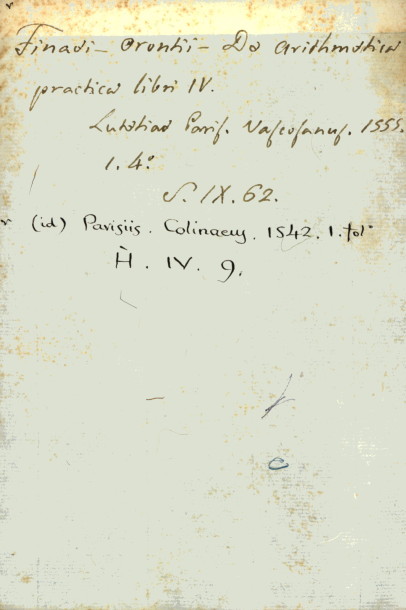 Finaei - Orontii - De Arithmetica
practica libri IV.
Lutetiae Paris. Vascosanus. 1555.
1. 4º
S. IX. 62.
(id) Parisiis. Colinaeus. 1542. 1. folº
H. IV. 9.